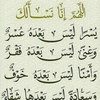 اللهم إنا نسألك
يُسْرًا لَيْسَ بَعْدَهُ عُسْرٌ
وَغِنًى لَيْسَ بَعْدَهُ فَقْرٌ
وَأَمْنًا لَيْسَ بَعْدَهُ خَوْفٌ
وَسَعَادَةً لَيْسَ بَعْدَهَا شَقَاءٌ